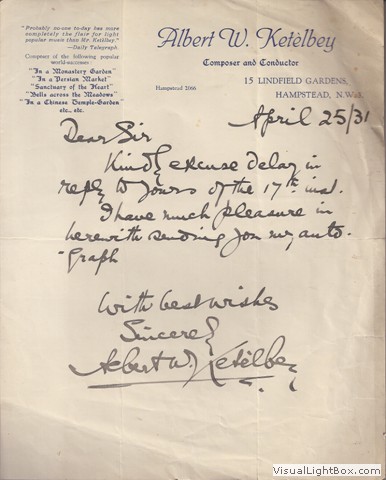 "Probably no one to-day has more
completely the flair for light
popular music than Mr. Ketèlbey."
—Daily Telegraph.
Composer of the following popular
world-successes:
"In a Monastery Garden"
"In a Persian Market"
"Sanctuary of the Heart"
"Bells across the Meadows"
"In a Chinese Temple-Garden"
etc., etc.
Albert W. Ketèlbey
Composer and Conductor
Hampstead 2166
15 LINDFIELD GARDENS,
HAMPSTEAD, N.W.
April 25/31
Dear Sir
Kindly excuse delay in
reply to yours of the 17th inst.
I have much pleasure in
herewith sending you my auto-
-graph
With best wishes
Sincerely
Albert W. Ketèlbey
Created by
VisualLightBox.com